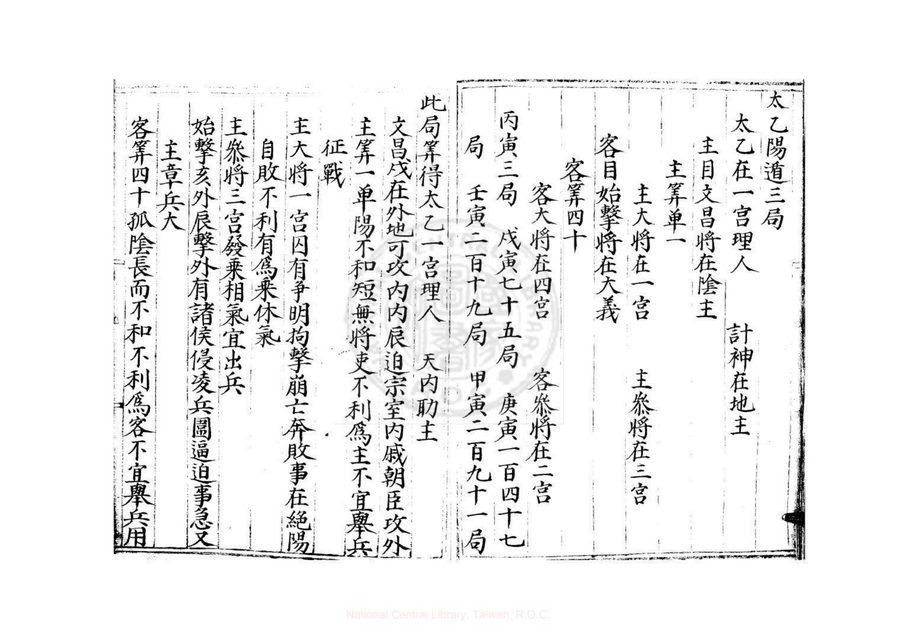 太乙陽遁三局
太乙在一宫理人　計神在地主
主目文昌將在陰主
主筭单一
主大將在一宫　主叅將在三宫
客目始擊將在大義
客筭四十
客大將在四宫　客叅將在二宫
丙寅三局　戊寅七十五局　庚寅一百四十七
局　壬寅二百十九局　甲寅二百九十一局
此局筭得太乙一宫理人　天内助主
文昌戌在外地可攻内内辰迫宗室内戚朝臣攻外
主筭一单陽不和短無將吏不利爲主不宜舉兵
征戰
主大將一宫囚有爭明拘擊崩亡奔敗事在絶陽
自敗不利有爲乗休氣
主叅將三宫發乗相氣宜出兵
始擊亥外辰擊外有諸侯侵凌兵圍逼迫事急又
主章兵大
客筭四十孤陰長而不和不利爲客不宜舉兵用
National Central Library, Taiwan, R.O.C.